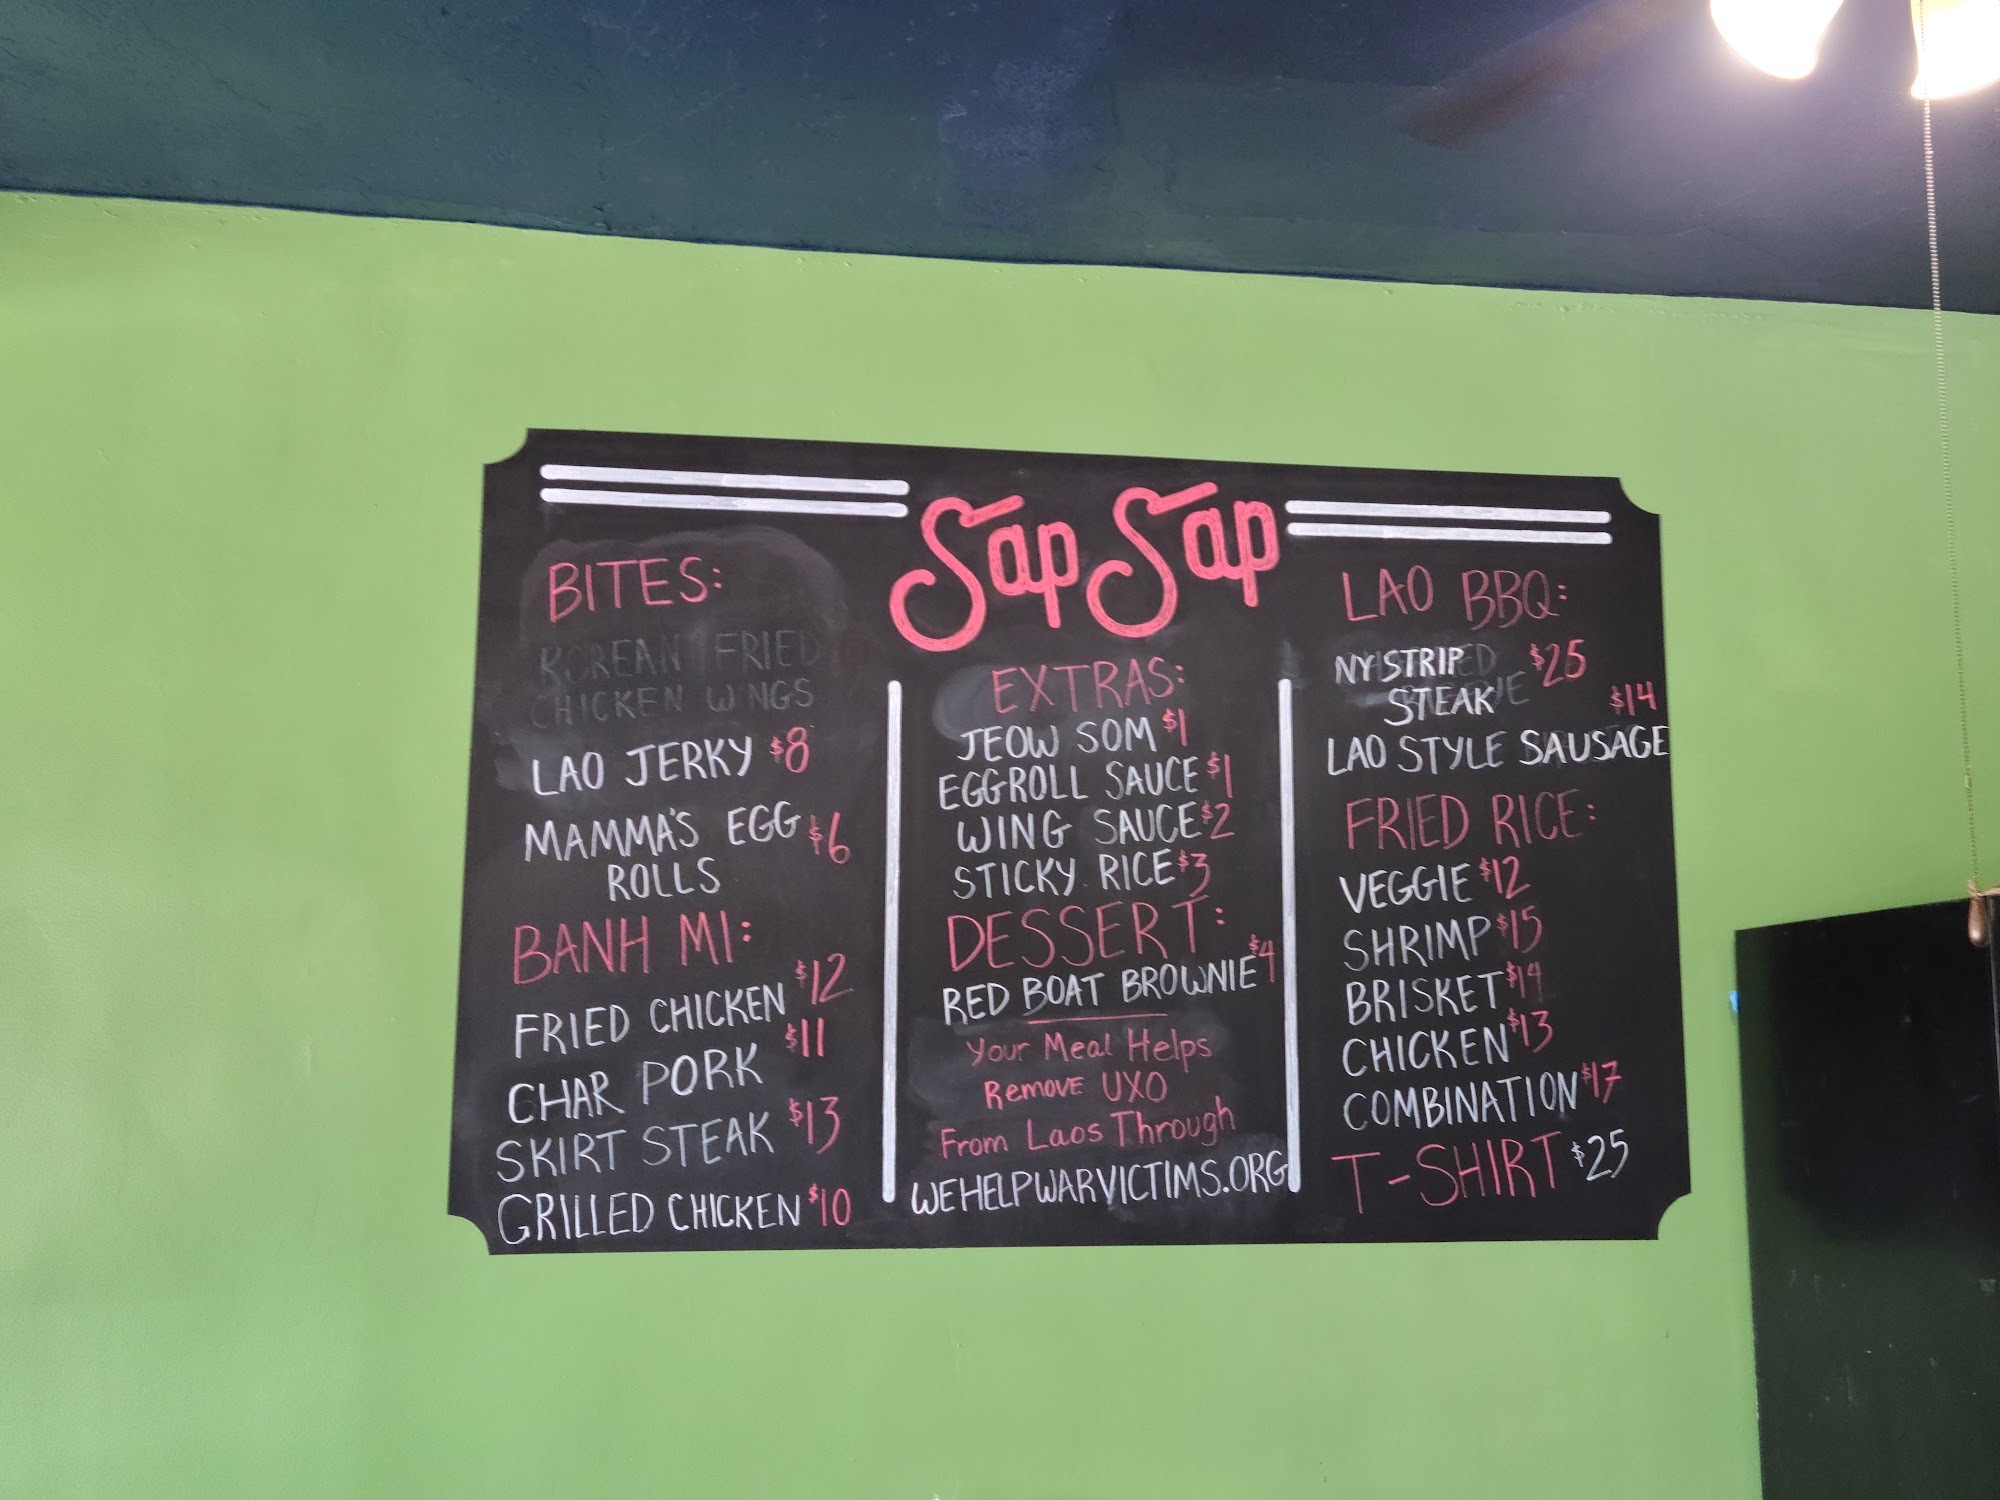 Sap Sap
BITES:
KOREAN FRIED
CHICKEN WINGS
LAO JERKY $8
MAMMA'S EGG $6
ROLLS
BANH MI:
FRIED CHICKEN $12
CHAR PORK $11
SKIRT STEAK $13
GRILLED CHICKEN $10
EXTRAS:
JEOW SOM $1
EGGROLL SAUCE $1
WING SAUCE $2
STICKY RICE $3
DESSERT:
RED BOAT BROWNIE $4
Your Meal Helps
Remove UXO
From Laos Through
WEHELPWARVICTIMS.ORG
LAO BBQ:
NY STRIP $25
STEAK
LAO STYLE SAUSAGE $14
FRIED RICE:
VEGGIE $12
SHRIMP $15
BRISKET $14
CHICKEN $13
COMBINATION $17
T-SHIRT $25